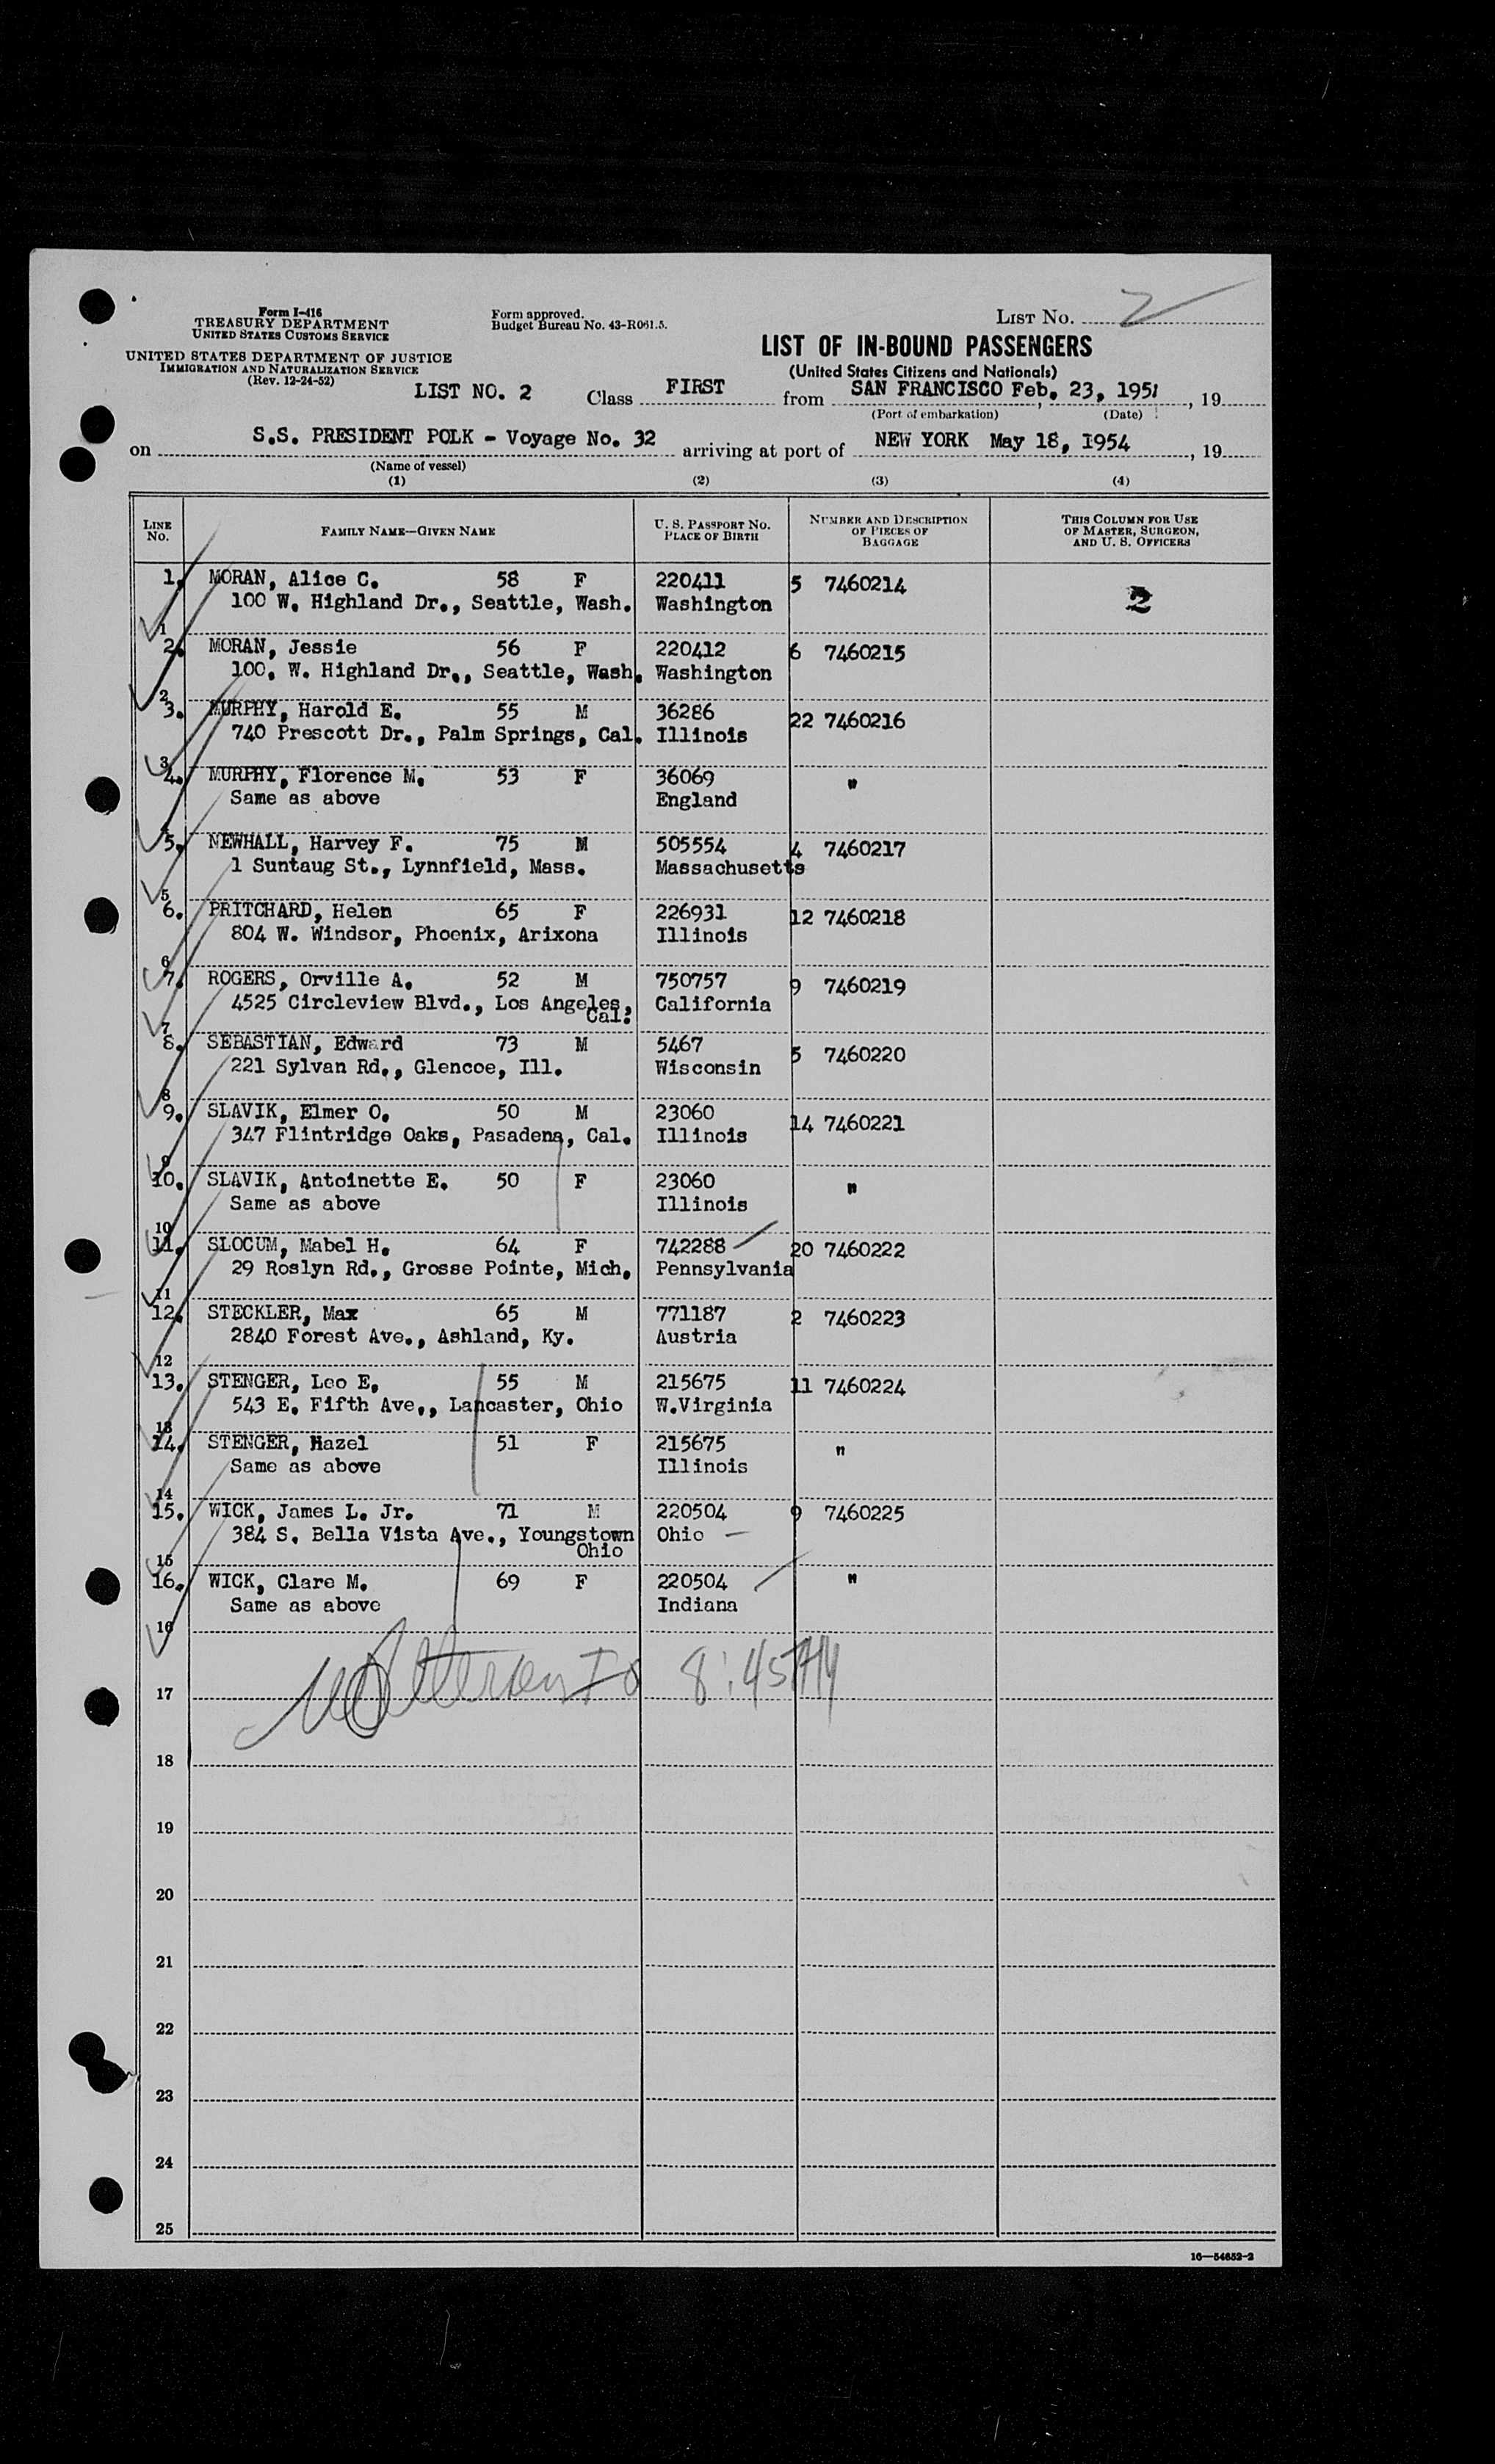 Form I-416
TREASURY DEPARTMENT
UNITED STATES CUSTOMS SERVICE
UNITED STATES DEPARTMENT OF JUSTICE
IMMIGRATION AND NATURALIZATION SERVICE
(Rev. 12-24-52)
Form approved.
Budget Bureau No. 43-R061.5.
LIST NO. 2
LIST OF IN-BOUND PASSENGERS
(United States Citizens and Nationals)
LIST NO. 2 Class FIRST from SAN FRANCISCO Feb. 23, 195 , 19
(Port of embarkation) (Date)
on S.S. PRESIDENT POLK - Voyage No. 32 arriving at port of NEW YORK May 18, 1954 , 19
(Name of vessel)
(1) (2) (3) (4)
LINE NO. FAMILY NAME—GIVEN NAME U. S. PASSPORT NO. PLACE OF BIRTH NUMBER AND DESCRIPTION OF PIECES OF BAGGAGE THIS COLUMN FOR USE OF MASTER, SURGEON, AND U. S. OFFICERS
1. MORAN, Alice C. 58 F 220411 5 7460214
100 W. Highland Dr., Seattle, Wash. Washington 2
1
2. MORAN, Jessie 56 F 220412 6 7460215
100. W. Highland Dr., Seattle, Wash. Washington
2
3. MURPHY, Harold E. 55 M 36286 22 7460216
740 Prescott Dr., Palm Springs, Cal. Illinois
3
4. MURPHY, Florence M. 53 F 36069 "
Same as above England
5. NEWHALL, Harvey F. 75 M 505554 4 7460217
1 Suntaug St., Lynnfield, Mass. Massachusetts
5
6. PRITCHARD, Helen 65 F 226931 12 7460218
804 W. Windsor, Phoenix, Arixona Illinois
6
7. ROGERS, Orville A. 52 M 750757 9 7460219
4525 Circleview Blvd., Los Angeles, California
Cal.
7
8. SEBASTIAN, Edward 73 M 5467 5 7460220
221 Sylvan Rd., Glencoe, Ill. Wisconsin
8
9. SLAVIK, Elmer O. 50 M 23060 14 7460221
347 Flintridge Oaks, Pasadena, Cal. Illinois
9
10. SLAVIK, Antoinette E. 50 F 23060 "
Same as above Illinois
10
11. SLOCUM, Mabel H. 64 F 742288 20 7460222
29 Roslyn Rd., Grosse Pointe, Mich. Pennsylvania
11
12. STECKLER, Max 65 M 771187 2 7460223
2840 Forest Ave., Ashland, Ky. Austria
12
13. STENGER, Leo E. 55 M 215675 11 7460224
543 E. Fifth Ave., Lancaster, Ohio W.Virginia
13
14. STENGER, Hazel 51 F 215675 "
Same as above Illinois
14
15. WICK, James L. Jr. 71 M 220504 9 7460225
384 S. Bella Vista Ave., Youngstown Ohio
Ohio
15
16. WICK, Clare M. 69 F 220504 "
Same as above Indiana
16
8:45 AM
17
18
19
20
21
22
23
24
25
16—54652-2